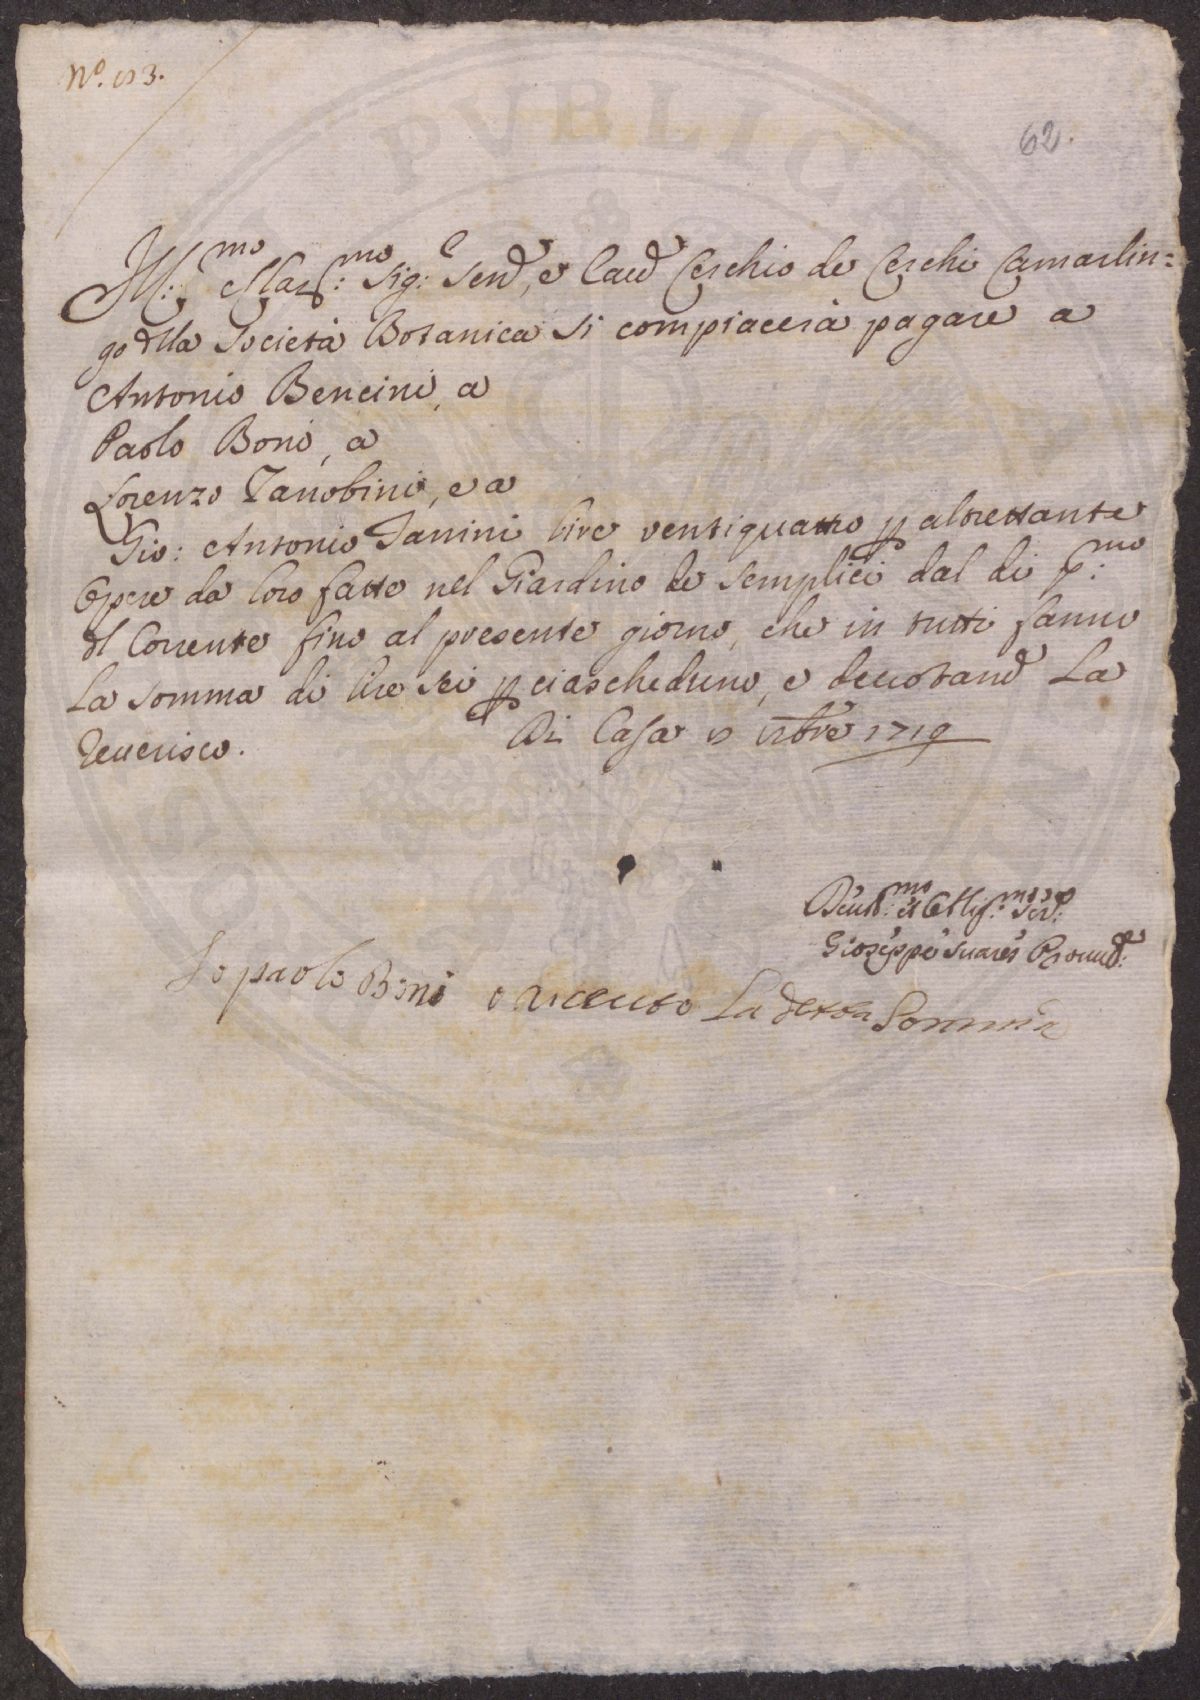 N.º 153.
62.
Ill:mo Clar:mo Sig:e Send, e Cavd Cerchio de Cerchi Camarlin=
go dlla Società Botanica si compiacerà pagare a
Antonio Bencini, a
Paolo Boni, a
Lorenzo Zanobini, e a
Gio: Antonio Janini lire ventiquattro p altrettante
Opere da loro fatte nel Giardino de Semplici dal di p:mo
dl Corrente fino al presente giorno, che in tutti fanno
La somma di lire sei p ciascheduno, e devotand La
reverisco.
Di Casa 1719
Devd:mo et Obblig:mo Serv:
Gioseppe Suares Provvd:e
Io paolo Boni o riceuto La detta Somma